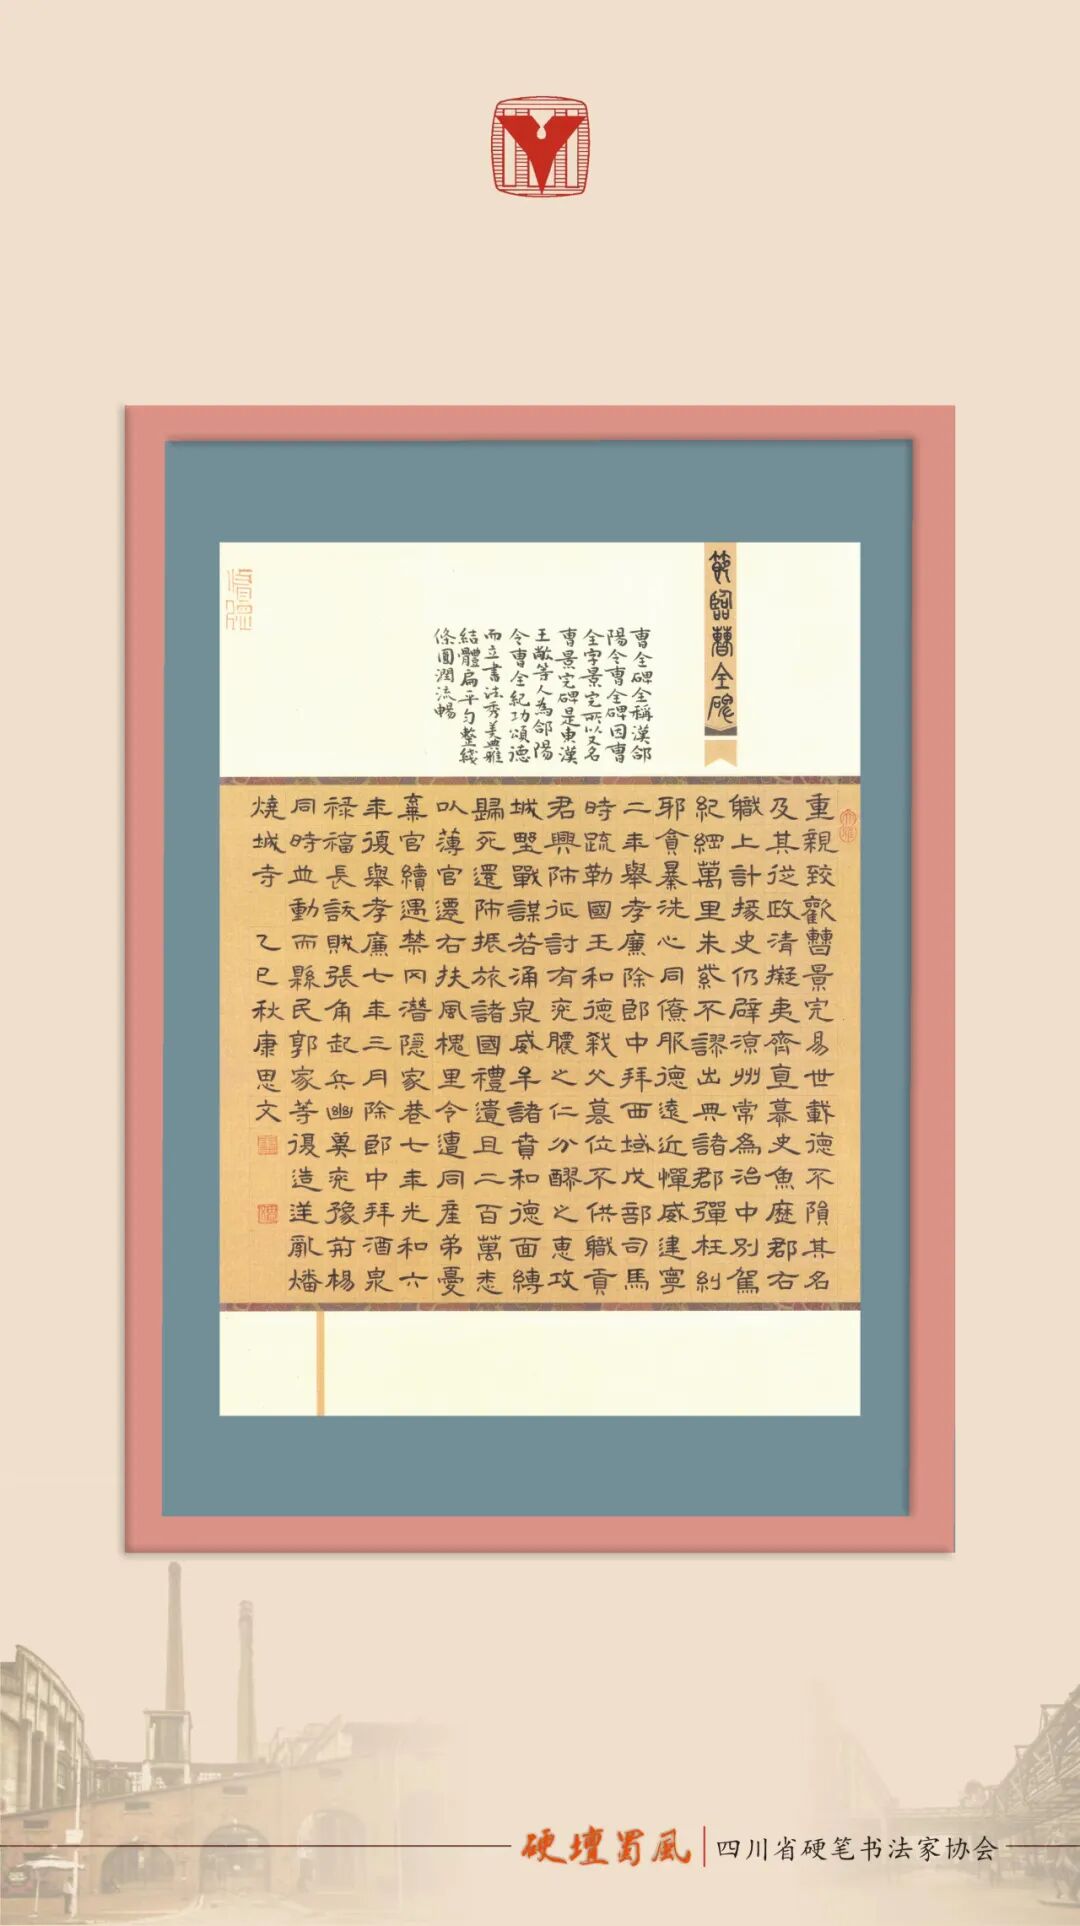 節臨曹全碑
曹全碑全稱漢郃
陽令曹全碑因曹
全字景完所以又名
曹景完碑是東漢
王敞等人為郃陽
令曹全紀功頌德
而立書法秀美典雅
結體扁平勻整綫
條圓潤流暢
重親致歡曹景完易世載德不隕其名
及其從政清擬夷齊直慕史魚歷郡右
職上計掾史仍辟涼州常為治中別駕
紀綱萬里朱紫不謬出典諸郡彈枉糾
耶貪暴洗心同僚服德遠近憚威建寧
二年舉孝廉除郎中拜西域戊部司馬
時疏勒國王和德弒父篡位不供職貢
君興師征討有兗膿之仁分醪之惠攻
城野戰謀若涌泉威牟諸賁和德面縛
歸死還師振旅諸國禮遺且二百萬悉
以薄官遷右扶風槐里令遭同產弟憂
棄官續遇禁罔潛隱家巷七年光和六
年復舉孝廉七年三月除郎中拜酒泉
祿福長訞賊張角起兵幽冀兗豫荊楊
同時並動而縣民郭家等復造逆亂燔
燒城寺 乙巳秋康思文
硬壇蜀風 四川省硬笔书法家协会